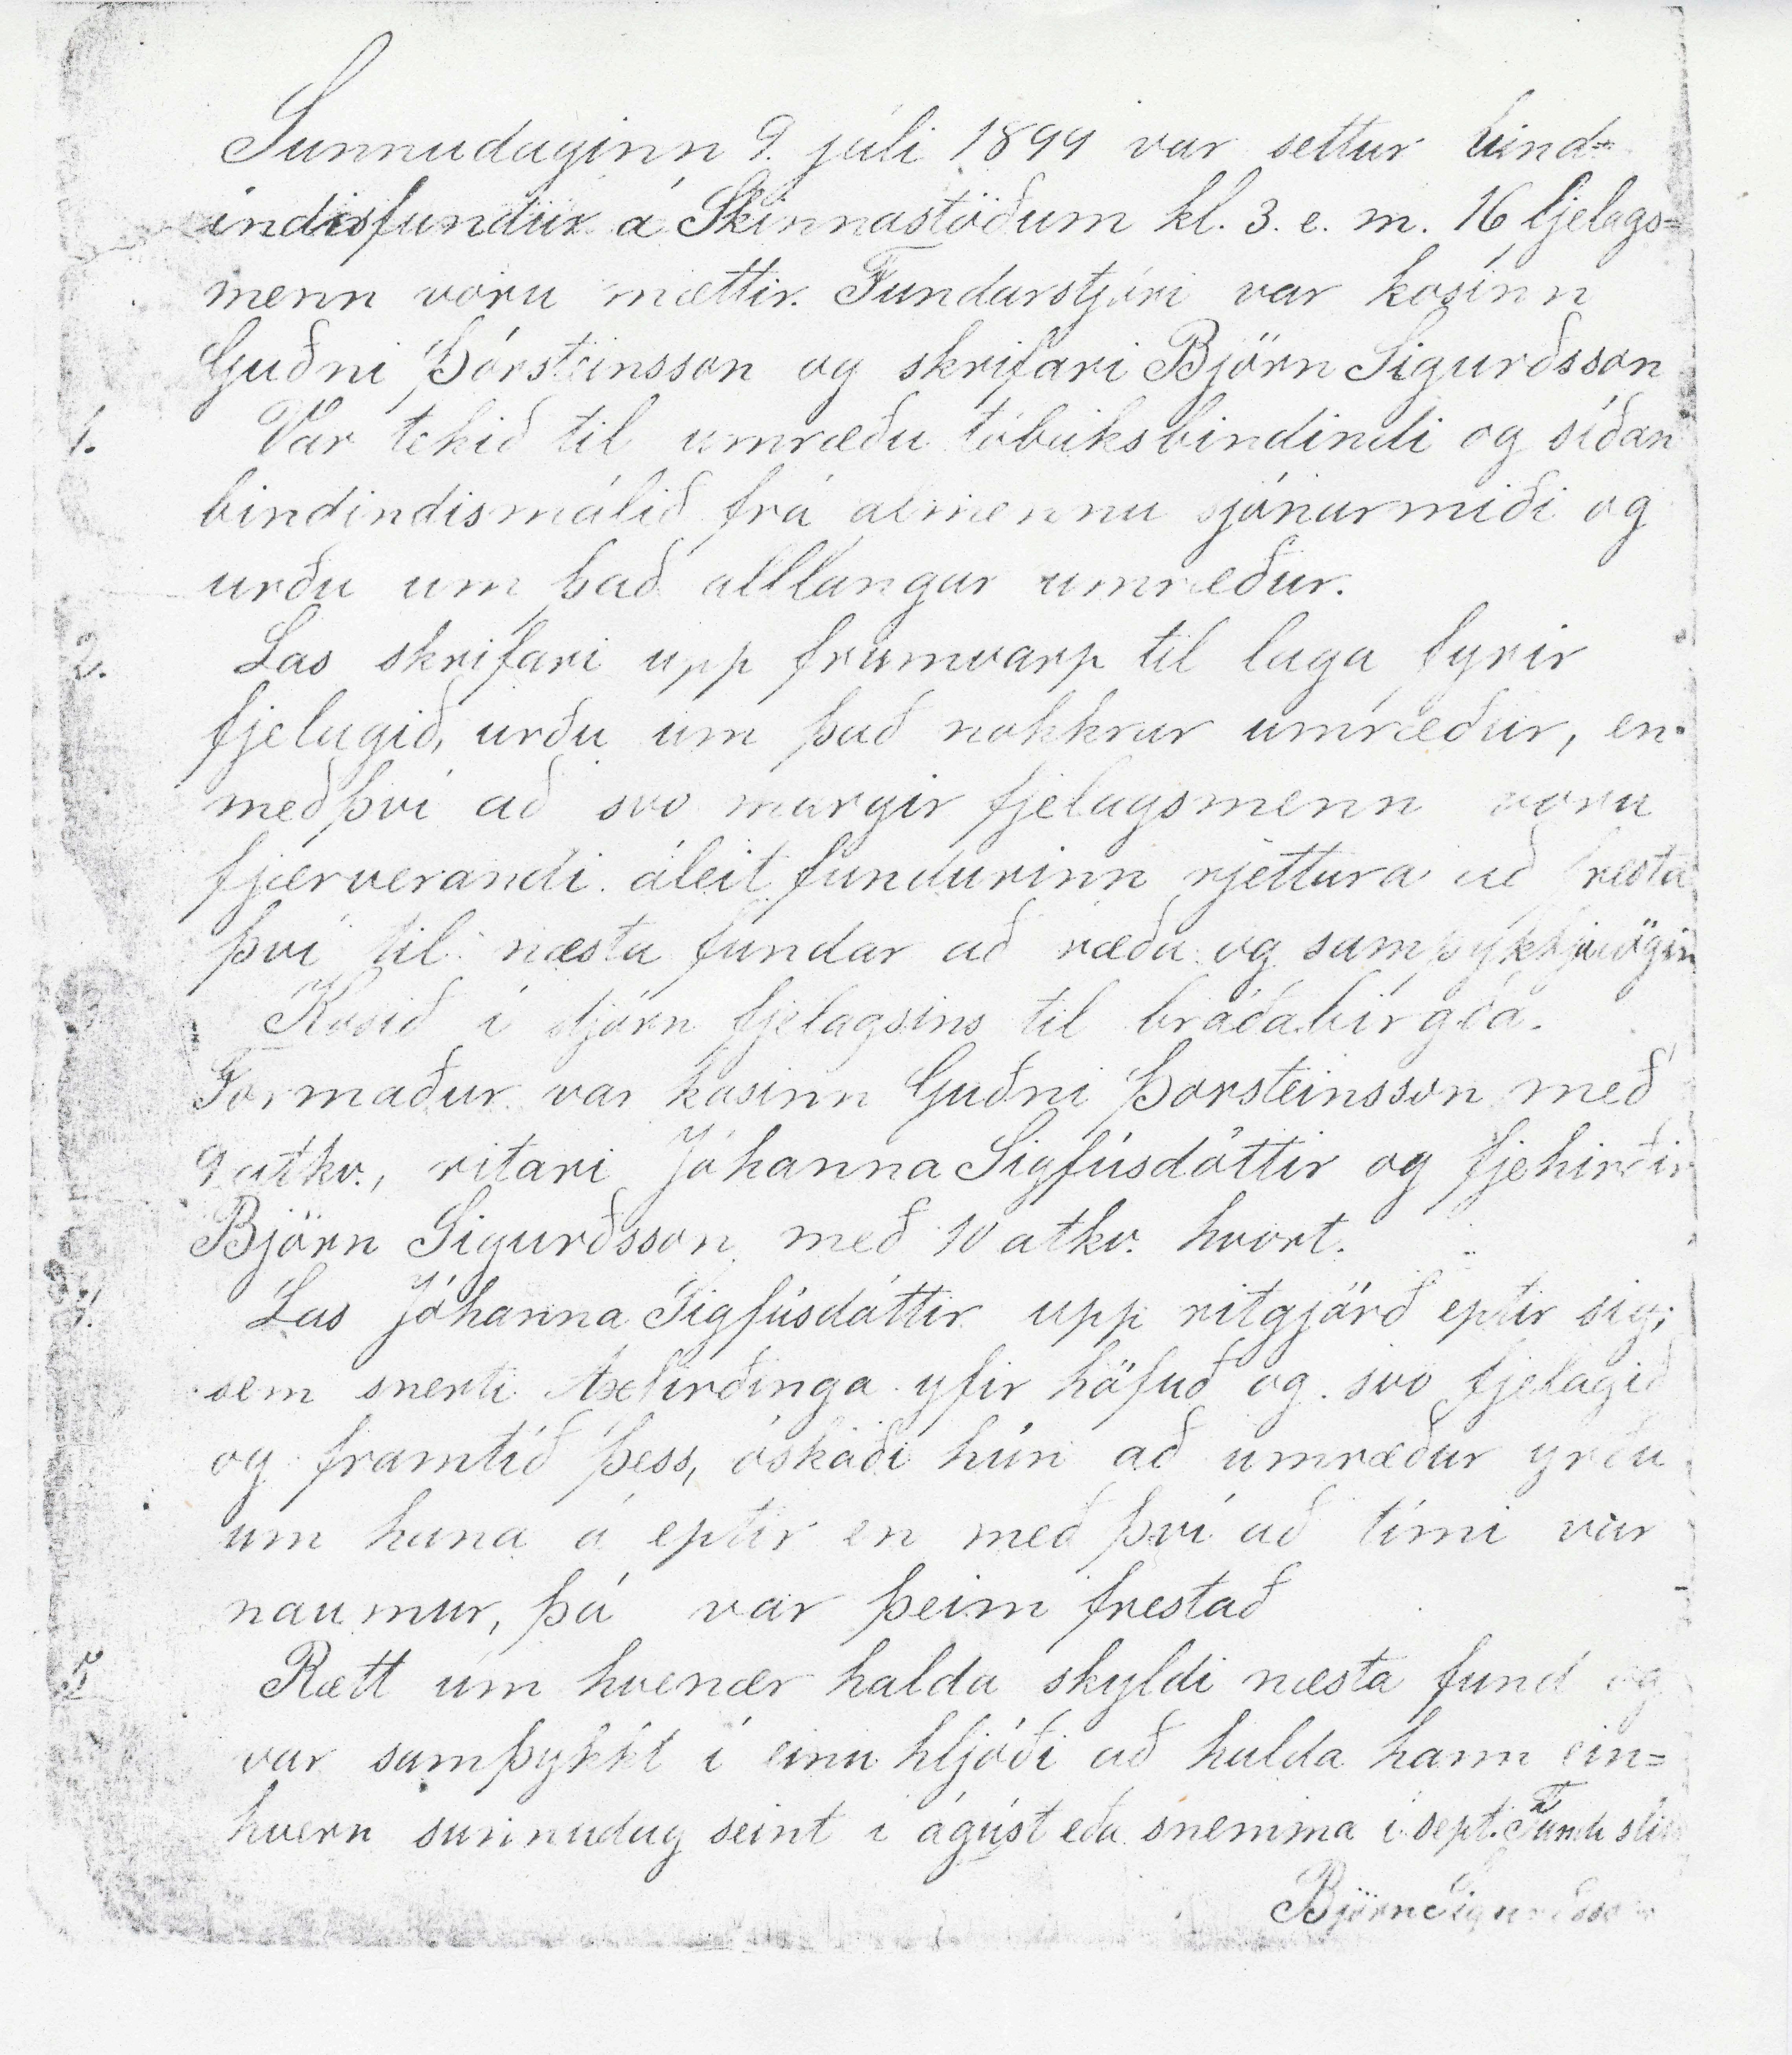 Sunnudaginn 9. júli 1899 var settur bind=
indisfundur á Skinnastöðum kl. 3. e. m. 16 fjelags=
menn voru mættir. Fundarstjóri var kosinn
Guðni Þórsteinsson og skrifari Björn Sigurðsson
1. Var tekið til umræðu tóbaksbindindi og síðan
bindindismálið frá almennu sjónarmiði og
urðu um það alllangar umræður.
2. Las skrifari upp frumvarp til laga fyrir
fjelagið, urðu um það nokkrar umræður, en
með því að svo margir fjelagsmenn voru
fjærverandi áleit fundurinn rjettara að fresta
því til næsta fundar að ræða og samþykkja lögin
Kosið í stjórn fjelagsins til bráðabirgða.
Formaður var kosinn Guðni Þorsteinsson með
9 atkv., ritari Jóhanna Sigfúsdóttir og fjehirðir
Björn Sigurðsson með 10 atkv. hvort.
4. Las Jóhanna Sigfúsdóttir upp ritgjörð eptir sig,
sem snerti Axfirðinga yfir höfuð og svo fjelagið
og framtíð þess, óskaði hún að umræður yrðu
um hana á eptir en með því að tími var
naumur, þá var þeim frestað
5 Rætt um hvenær halda skyldi næsta fund og
var samþykkt í einu hljóði að halda hann ein=
hvern sunnudag seint í ágúst eða snemma í sept. Fundi slitið
Björn Sigurðsson